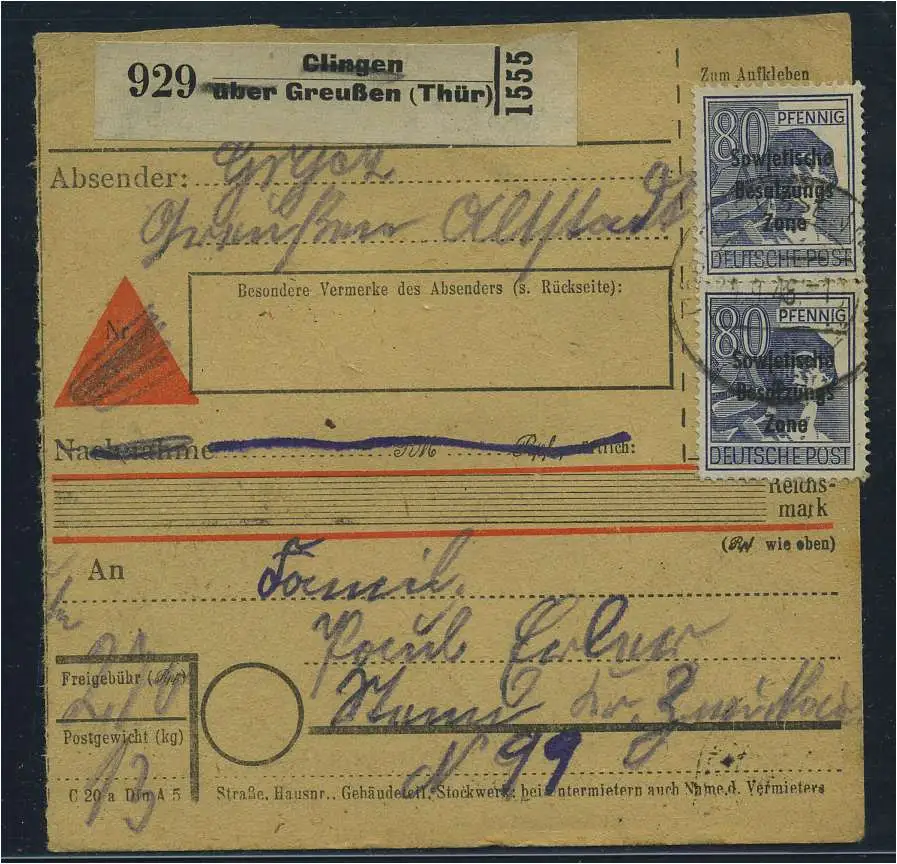 929 Clingen
über Greußen (Thür)
1555
Zum Aufkleben
80 PFENNIG
Sowjetische
Besatzungs
Zone
DEUTSCHE POST
80 PFENNIG
Sowjetische
Besatzungs
Zone
DEUTSCHE POST
Absender:
Greußen Altstadt
Besondere Vermerke des Absenders (s. Rückseite):
Nr.
Nachnahme RM Rpf, wörtlich:
Reichs-
mark
(Rpf wie oben)
An Famil.
Paul Erler
Freigebühr (Rpf)
Postgewicht (kg)
13
N 99
C 20 a Din A 5
Straße, Hausnr., Gebäudeteil, Stockwerk; bei Untermietern auch Name d. Vermieters